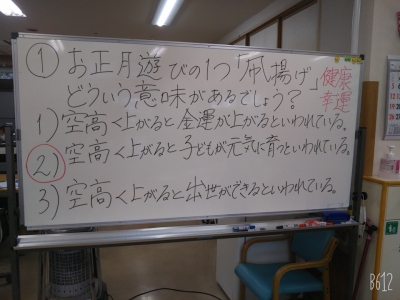 ① お正月遊びの1つ「凧揚げ」
どういう意味があるでしょう？
健康
幸運
1) 空高く上がると金運が上がるといわれている。
2) 空高く上がると子どもが元気に育つといわれている。
3) 空高く上がると出世ができるといわれている。
B612